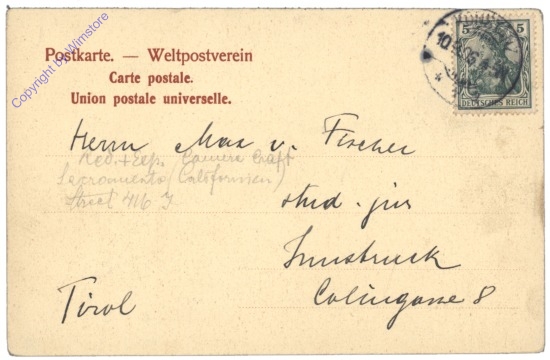 Copyright by Wimstore
Postkarte. — Weltpostverein
Carte postale.
Union postale universelle.
5 5
DEUTSCHES REICH
Herrn Max v. Fischer
Camera Craft
Sacramento (Californien)
Street 416 J
stud. jur
Innsbruck
Tirol
Colingasse 8